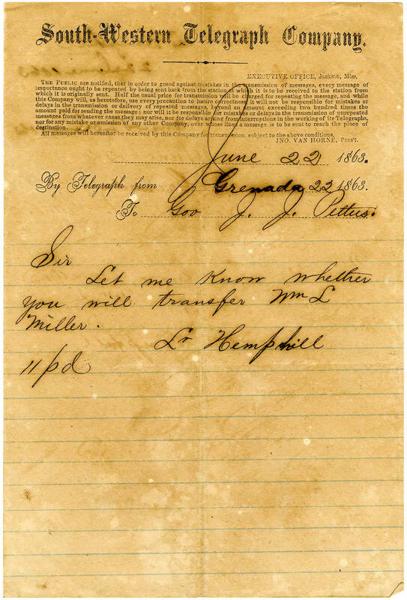 South-Western Telegraph Company.
EXECUTIVE OFFICE, Jackson, Miss.
THE PUBLIC are notified, that in order to guard against mistakes in the transmission of messages, every message of
importance ought to be repeated by being sent back from the station at which it is to be received to the station from
which it is originally sent. Half the usual price for transmission will be charged for repeating the message, and while
this Company will, as heretofore, use every precaution to insure correctness, it will not be responsible for mistakes or
delays in the transmission or delivery of repeated messages, beyond an amount exceeding two hundred times the
amount paid for sending the message; nor will it be responsible for mistakes or delays in the transmission of unrepeated
messages from whatever cause they may arise, nor for delays arising from interruptions in the working of its Telegraphs,
nor for any mistake or omission of any other Company over whose lines a message is to be sent to reach the place of
destination.
All messages will hereafter be received by this Company for transmission, subject to the above conditions.
JNO. VAN HORNE, Pres't.
June 22 1863.
By Telegraph from Grenada 22 1863.
To Gov J. J. Pettus.
Sir
Let me Know whether
you will transfer Wm L
Miller.
Lr Hemphill
11 pd